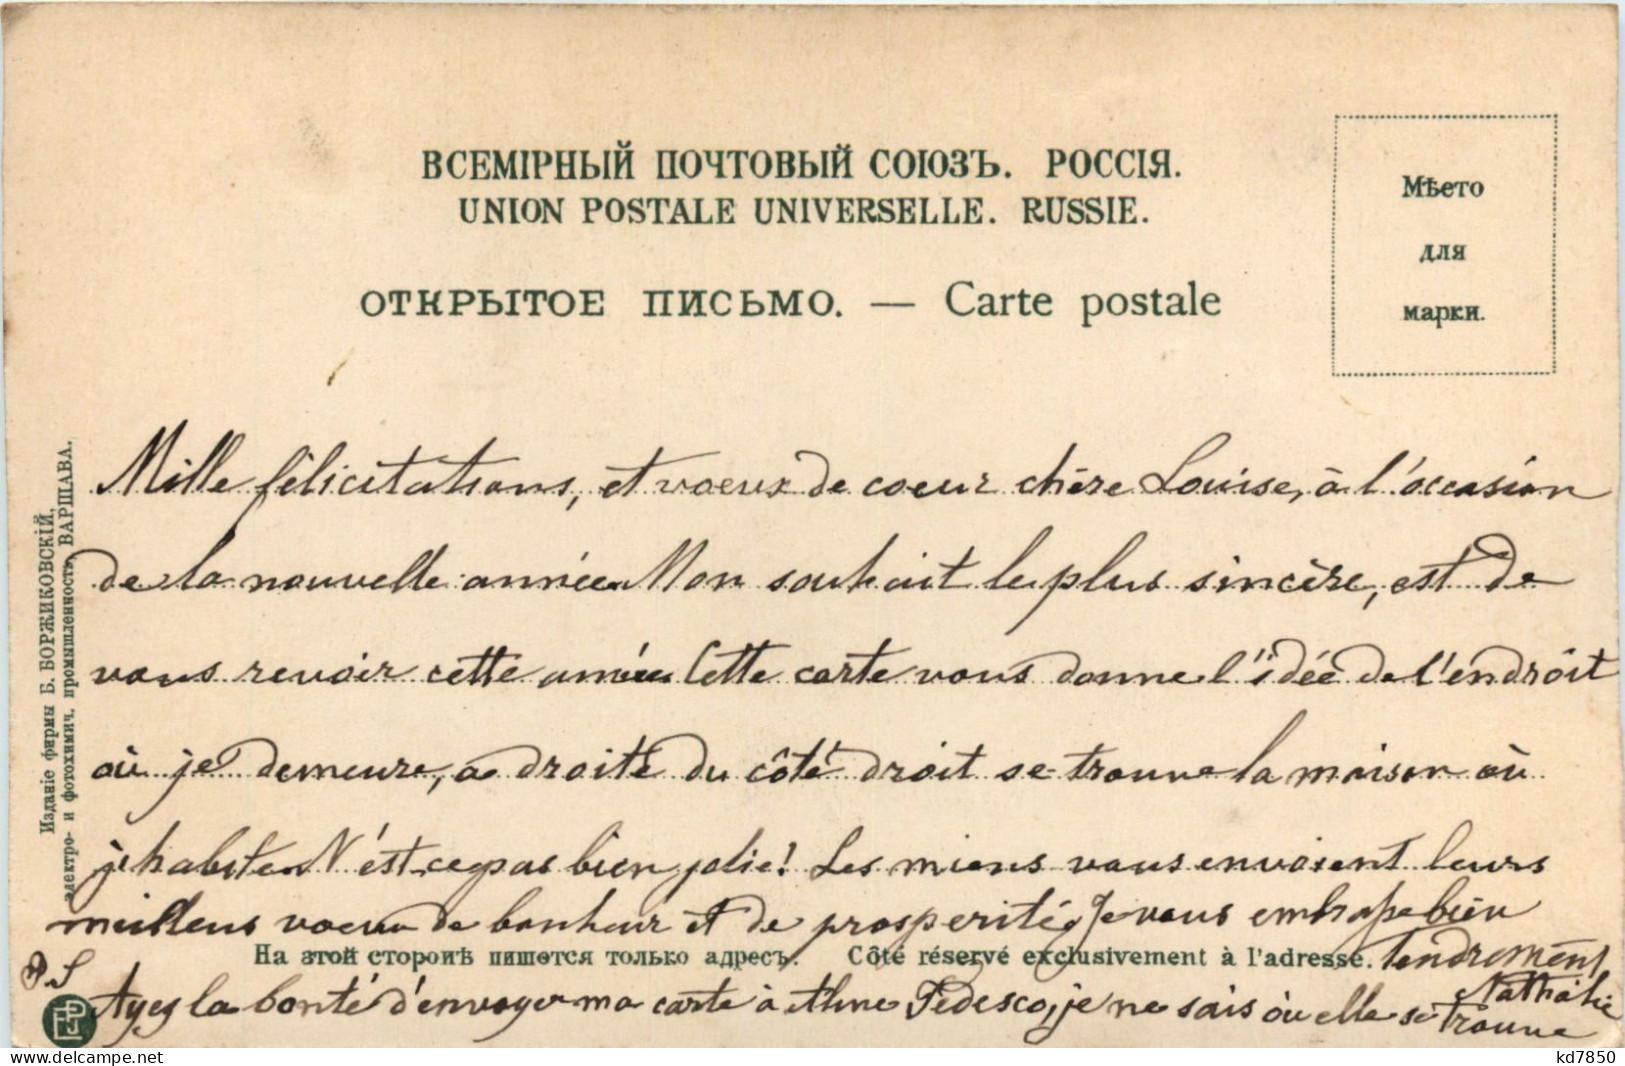 ВСЕМІРНЫЙ ПОЧТОВЫЙ СОЮЗЪ. РОССІЯ.
UNION POSTALE UNIVERSELLE. RUSSIE.
ОТКРЫТОЕ ПИСЬМО. — Carte postale
Мѣсто
для
марки.
Изданіе фирмы Б. БОРЖИКОВСКІЙ,
электро- и фотохимич. промышленность, ВАРШАВА.
Mille félicitations, et voeux de coeur chère Louise, à l'occasion
de la nouvelle année. Mon souhait le plus sincère, est de
vous revoir cette année Cette carte vous donne l'idée de l'endrôit
où je demeure, a droite du côté droit se trouve la maison où
j'habite. N'est ce pas bien jolie! Les miens vous envoient leurs
meilleurs voeux de bonheur et de prosperité, Je vous embrasse bien
На этой сторонѣ пишется только адресъ. Côté réservé exclusivement à l'adresse. tendrement
Nathalie
P.S Ayez la bonté d'envoyer ma carte à Mme Tedesco, je ne sais où elle se trouve
kd7850